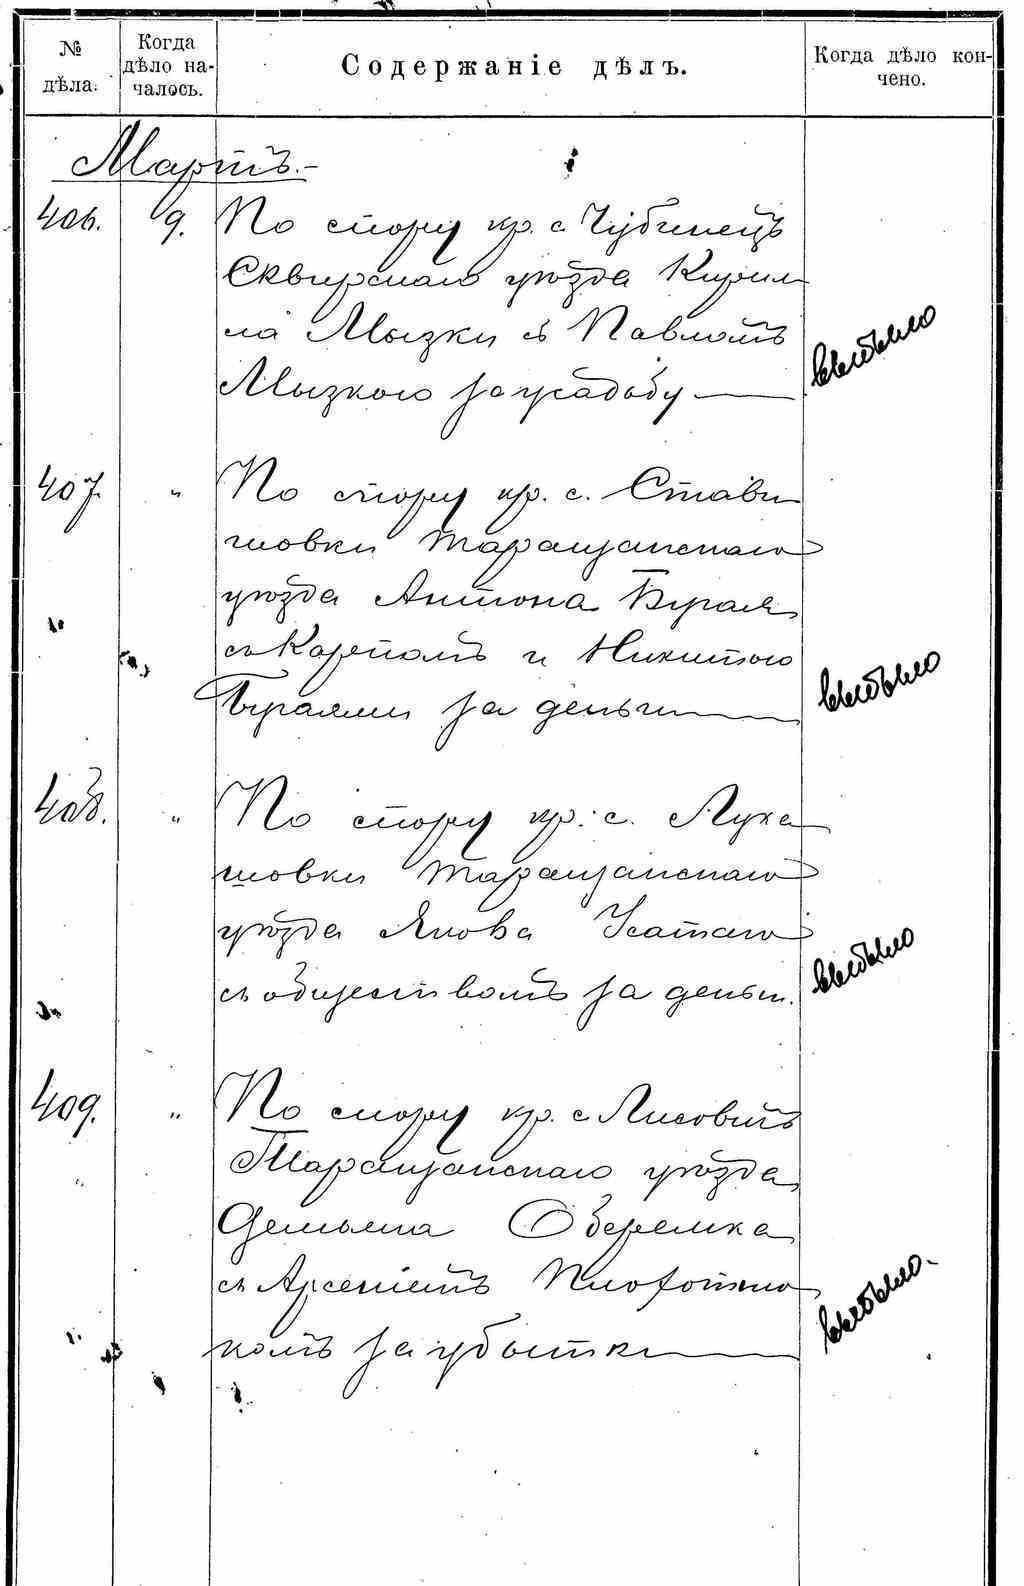 № дѣла.
Когда дѣло на-
чалось.
Содержаніе дѣлъ.
Когда дѣло кон-
чено.
Мартъ.-
406. 9. По спору кр. с. Чубинецъ
Сквирскаго уѣзда Кирил
ла Мызки съ Павломъ
Мызкою за усадьбу
407. " По спору кр. с. Стави
шовки Таращанскаго
уѣзда Антона Бурая
съ Карпомъ и Никитою
Бураями за деньги
408. " По спору кр. с. Лука
шовки Таращанскаго
уѣзда Якова Усатаго
съ обществомъ за деньги.
409. " По спору кр. с. Лисовичъ
Таращанскаго уѣзда
Демьяна Оберемка
съ Арсеніемъ
комъ за убытки
выбыло
выбыло
выбыло
выбыло.